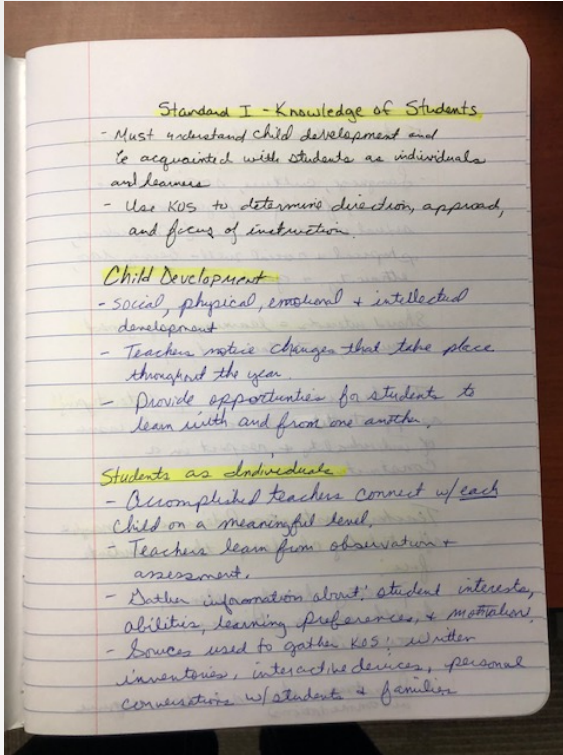 Standard I - Knowledge of Students
- Must understand child development and
be acquainted with students as individuals
and learners
- Use KOS to determine direction, approach,
and focus of instruction.
Child Development
- Social, physical, emotional + intellectual
development
- Teachers notice changes that take place
throughout the year.
- Provide opportunities for students to
learn with and from one another.
Students as Individuals
- Accomplished teachers connect w/ each
child on a meaningful level.
- Teachers learn from observation +
assessment.
- Gather information about: student interests,
abilities, learning preferences, + motivation.
- Sources used to gather KOS: written
inventories, interactive devices, personal
conversations w/ students + families